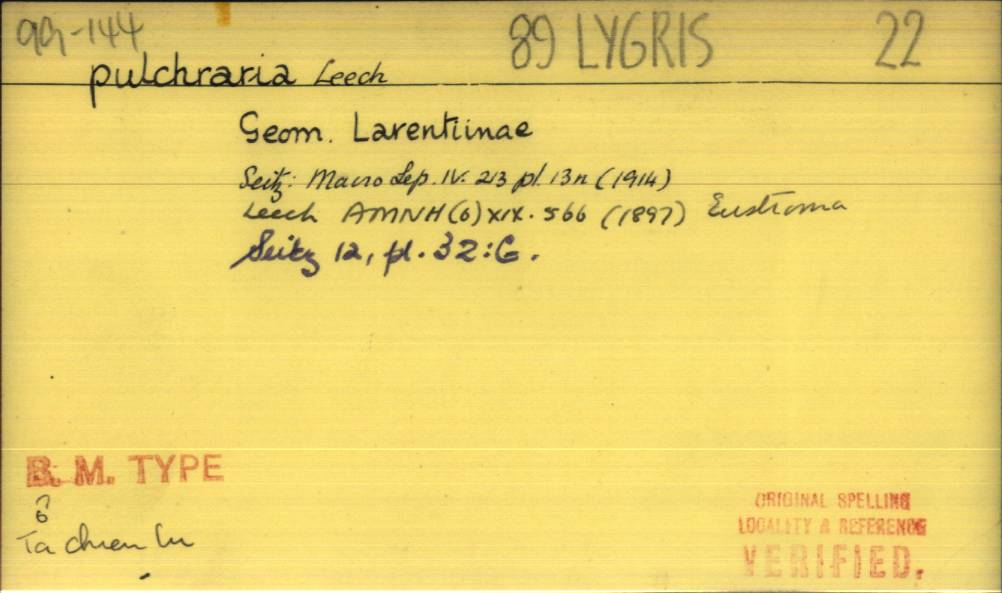 99-144
89 LYGRIS 22
pulchraria Leech
Geom. Larentiinae
Seitz: Macro Lep. IV. 213 pl. 13n (1914)
Leech AMNH (6) XIX. 566 (1897) Eustroma
Seitz 12, pl. 32:G.
B. M. TYPE
♂
Ta chien lu
ORIGINAL SPELLING
LOCALITY & REFERENCE
VERIFIED.